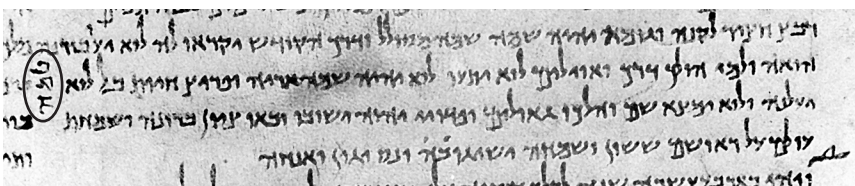 רבץ חציר לקנה וגומא והיה שמה שמה מסולל ודרך הקודש יקראו לה לוא יעבורנה
טמה
הואה ולמי הולך דרך ואוילים לוא יתעו לוא יהיה שמה אריה ופריץ חיות בל לוא
יעלנה ולוא ימצא שם והלכו גאולים ופדויי יהוה ישובו ובאו ציון ברונה ושמחת
עולם על ראושם ששון ושמחה ישיגובה ונס יגון ואנחה